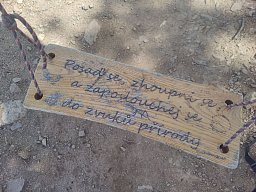 Posaď se, zhoupni se
a zaposlouchej se
do zvuků přírody